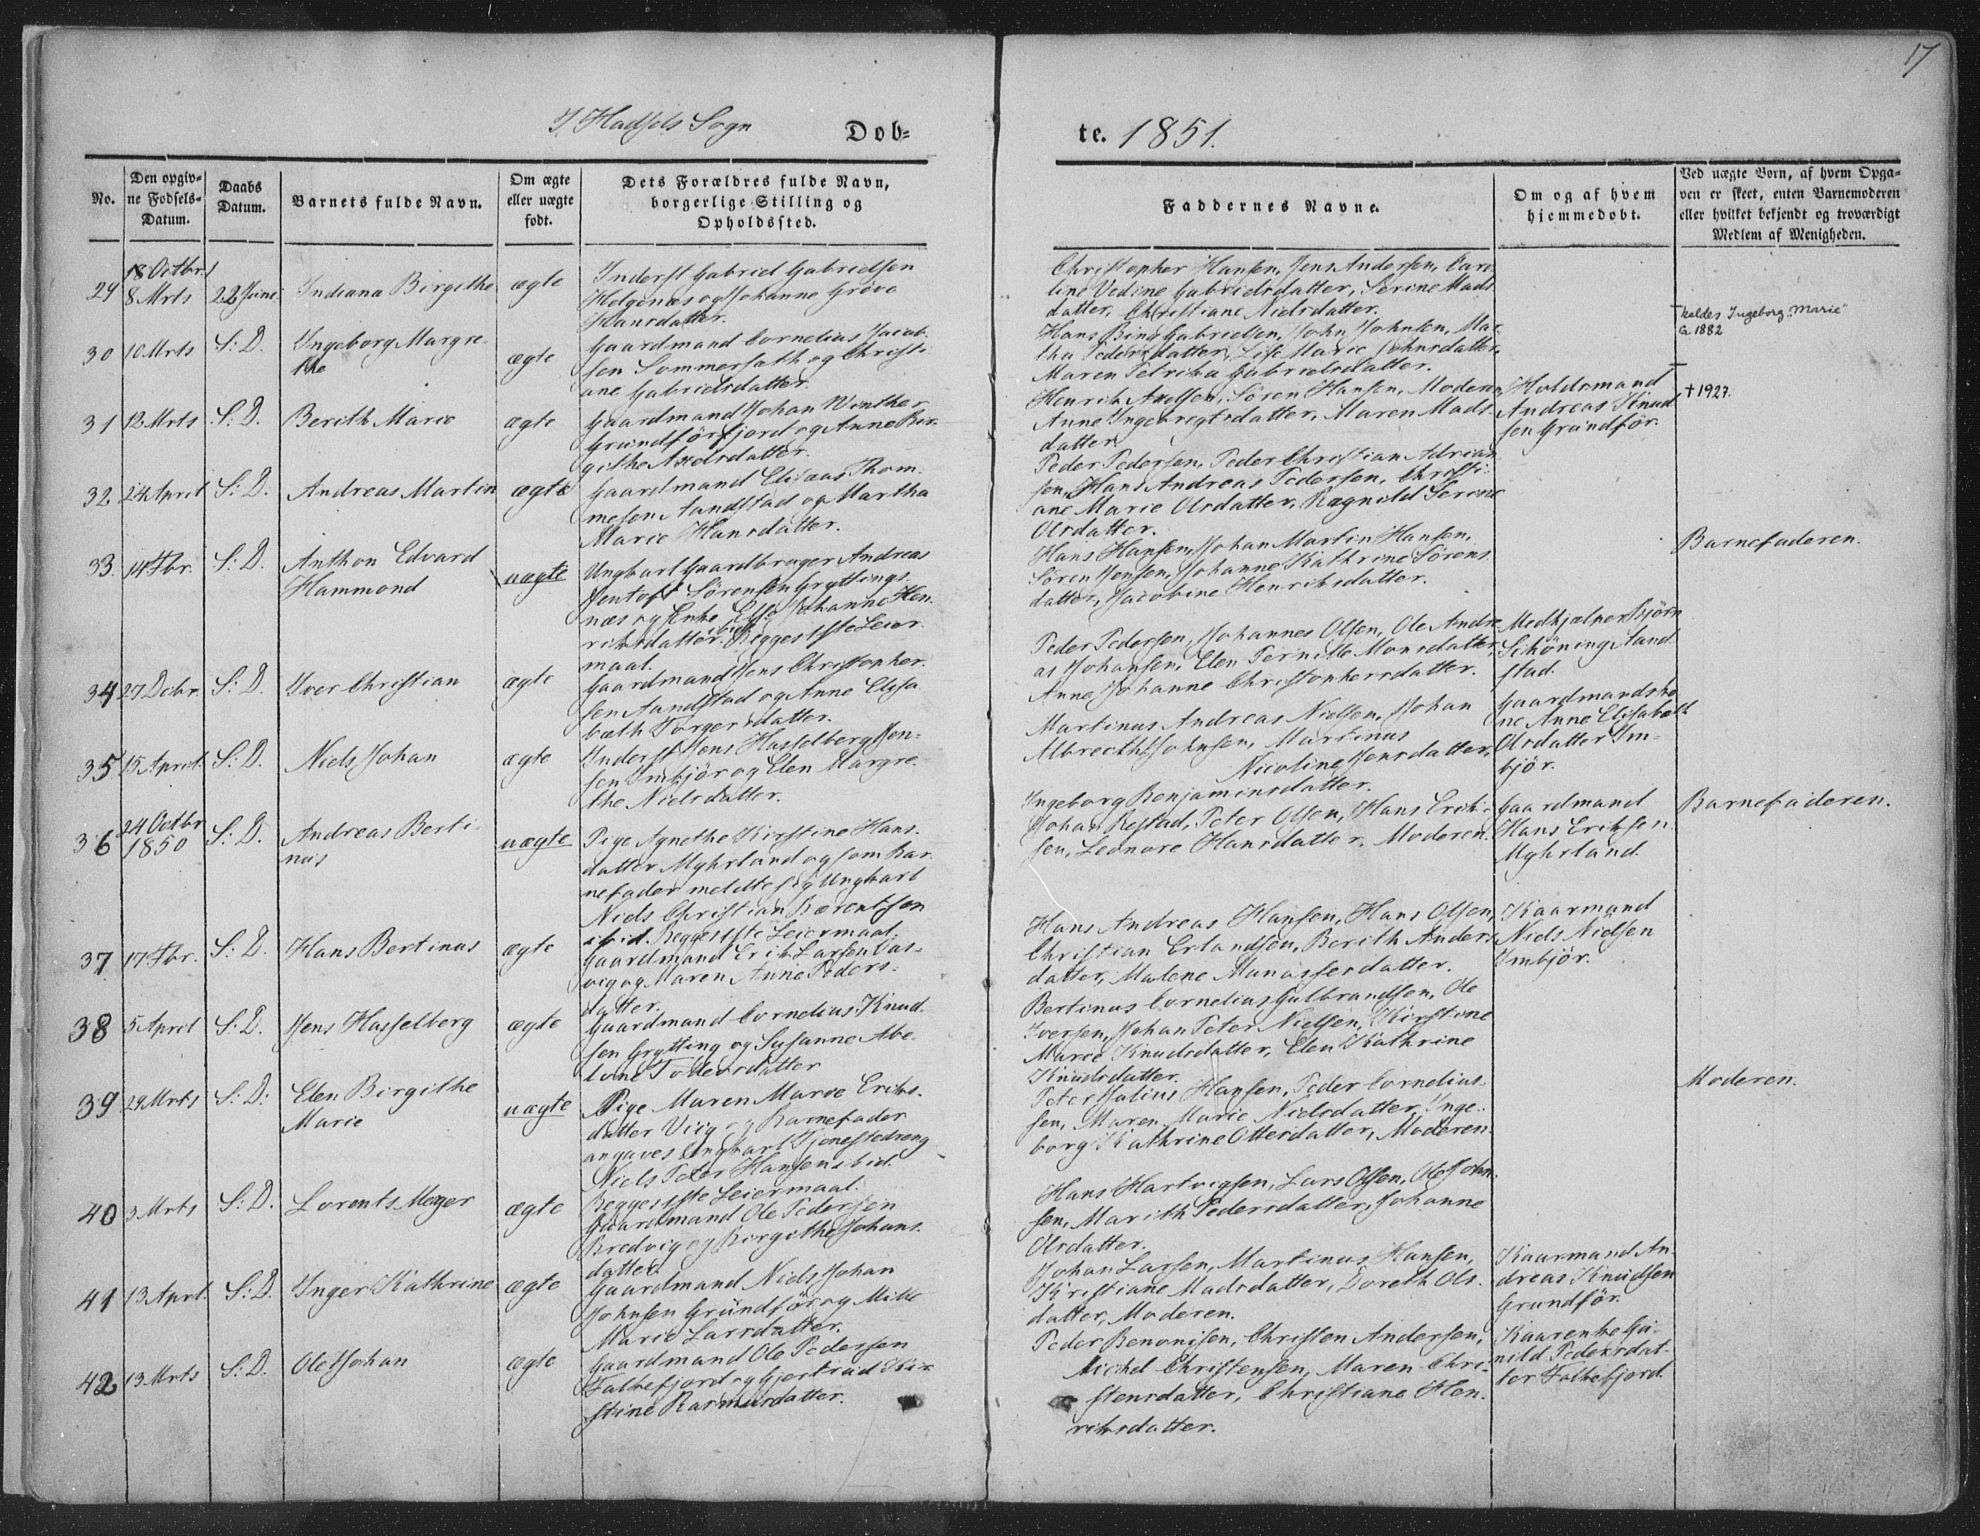 17
I Hadsels Sogn
Døb-
te. 1851.
No.
Den opgiv-
ne Fødsels-
Datum.
Daabs
Datum.
Barnets fulde Navn.
Om ægte
eller uægte
født.
Dets Forældres fulde Navn,
borgerlige Stilling og
Opholdssted.
Faddernes Navne.
Om og af hvem
hjemmedøbt.
Ved uægte Børn, af hvem Opga-
ven er skeet, enten Barnemoderen
eller hvilket bekjendt og troværdigt
Medlem af Menigheden.
29
18 Octbr
8 Mrts
22 Juni
Indiana Birgithe
ægte
Inderst Gabriel Gabrielsen
Helgenæs og Johanne Grove
Hansdatter.
Christopher Hansen, Jens Andersen, Caro
line Vedine Gabrielsdatter, Serine Mads
datter, Christiane Nielsdatter.
30
10 Mrts
S: D.
Ingeborg Margre
the
ægte
Gaardmand Cornelius Jacob-
sen Sommersæth og Christi
ane Gabrielsdatter.
Hans Bing Gabrielsen, John Johnsen, Mar
tha Pedersdatter, Lise Marie Johnsdatter,
Maren Petrika Gabrielsdatter.
kaldes Ingeborg "Marie"
G. 1882
31
12 Mrts
S: D.
Berith Marie
ægte
Gaardmand Johan Winther
Grundførfjord og Anne Bir-
githe Axelsdatter.
Henrik Axelsen, Søren Hansen, Moderen,
Anne Ingebrigtsdatter, Maren Mads
datter.
Holdsmand
Andreas Knud
sen Grundfør.
† 1927.
32.
24 April
S: D.
Andreas Martin
ægte
Gaardmand Elisæus Thom-
mesen Sandstad og Martha
Marie Hansdatter.
Peder Pedersen, Peder Christian Adrian
sen, Hans Andreas Pedersen, Christi-
ane Marie Olsdatter, Ragnild Serine
Olsdatter.
33.
14 Fbr.
S: D.
Anthon Edvard
Hammond
uægte
Ungkarl Gaardbruger Andreas
Jentoft Sørensen Gryttings-
næs og Enke Else Johanne Hen-
riksdatter ibid. Begges 1ste Leier
maal.
Hans Hansen, Johan Martin Hansen,
Søren Jensen, Johanne Kathrine Sørens
datter, Jacobine Henriksdatter.
Barnefaderen.
34
27 Debr.
S: D.
Iver Christian
ægte
Gaardmand Jens Christopher-
sen Sandstad og Anne Elisa
bæth Torgersdatter.
Peder Pedersen, Johannes Olsen, Ole Andre
as Johansen, Elen Pernille Monsdatter,
Anne Johanne Christophersdatter.
Medhjælper Bjørn
Schöning Sand
stad.
35
15 April.
S: D.
Niels Johan
ægte
Inderst Jens Hasselberg Jen-
sen Innbjør og Elen Margre
the Nielsdatter.
Martinus Andreas Nielsen, Johan
Albrecth Johnsen, Martinus
Nicoline Jensdatter,
Ingeborg Benjaminsdatter.
Gaardmandsko
ne Anne Elisabeth
Olsdatter Inn-
bjør.
36
24 Octbr
1850
S: D.
Andreas Berti-
nus
uægte
Pige Agnethe Kirstine Hans-
datter Myhrland og som Bar-
nefader meldte sig Ungkarl
Niels Christian Bærentsen
ibid. Begges 1ste Leiermaal.
Johan Restad, Peter Olsen, Hans Erik-
sen, Leonore Hansdatter, Moderen.
Gaardmand
Hans Eriksen
Myhrland.
Barnefaderen.
37
17 Fbr.
S: D.
Hans Bertinus
ægte
Gaardmand Erik Larsen Vas-
vig og Maren Anne Peders-
datter.
Hans Andreas Hansen, Hans Olsen,
Christian Erlandsen, Berith Anders
datter, Malene Manassesdatter.
Kaarmand
Niels Nielsen
Innbjør.
38
5 April
S: D.
Jens Hasselberg
ægte
Gaardmand Cornelius Knud-
sen Grytting og Susanne Abe-
lone Todeusdatter
Bertinus Cornelius Gulbrandsen, Ole
Iversen, Johan Peter Nielsen, Kirstine
Marie Knudsdatter, Elen Kathrine
Knudsdatter.
39
29 Mrts
S: D.
Elen Birgithe
Marie
uægte
Pige Maren Marie Eriks-
datter Viig og Barnefader
angaves Ungkarl Tjenestedreng
Niels Peter Hansen ibid.
Begges 1ste Leiermaal.
Peter Julius Hansen, Peder Cornelius-
sen, Maren Marie Nielsdatter, Inge-
borg Kathrine Ottersdatter, Moderen.
Moderen.
40
3 Mrts
S: D.
Lorents Meyer
ægte
Gaardmand Ole Pedersen
Bredvig og Birgithe Johans-
datter.
Hans Hartvigsen, Lars Olsen, Ole John-
sen, Marith Pedersdatter, Johanne
Olsdatter.
41
13 Aprl.
S: D.
Inger Kathrine
ægte
Gaardmand Niels Johan
Johnsen Grundfør og Mille
Marie Larsdatter.
Johan Larsen, Martinus Hansen,
Kristiane Madsdatter, Doreth Ols-
datter, Moderen.
Kaarmand An-
dreas Knudsen
Grundfør.
42
13 Mrts
S: D.
Ole Johan
ægte
Gaardmand Ole Pedersen
Falkefjord og Gjertrud Chri-
stine Rasmusdatter.
Peder Benonisen, Christen Andersen,
Michel Christensen, Maren Chri-
stensdatter, Christiane Hen-
riksdatter.
Kaarenke Gu-
nild Pedersdat-
ter Falkefjord.